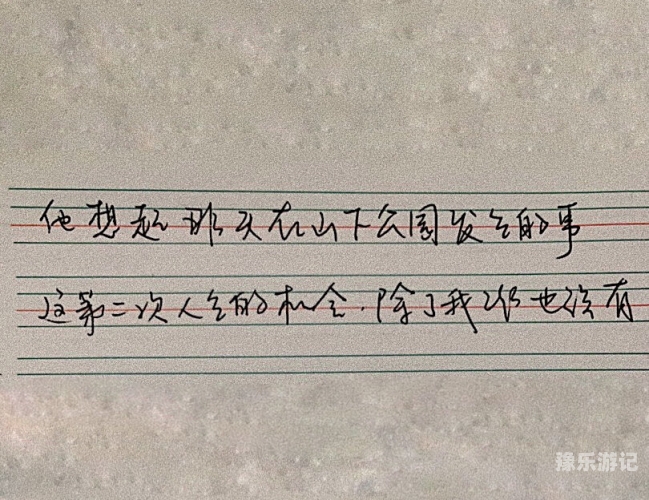 他想起昨天在山下公园发生的事
这第二次人生的机会.除了我谁也没有
豫乐游记